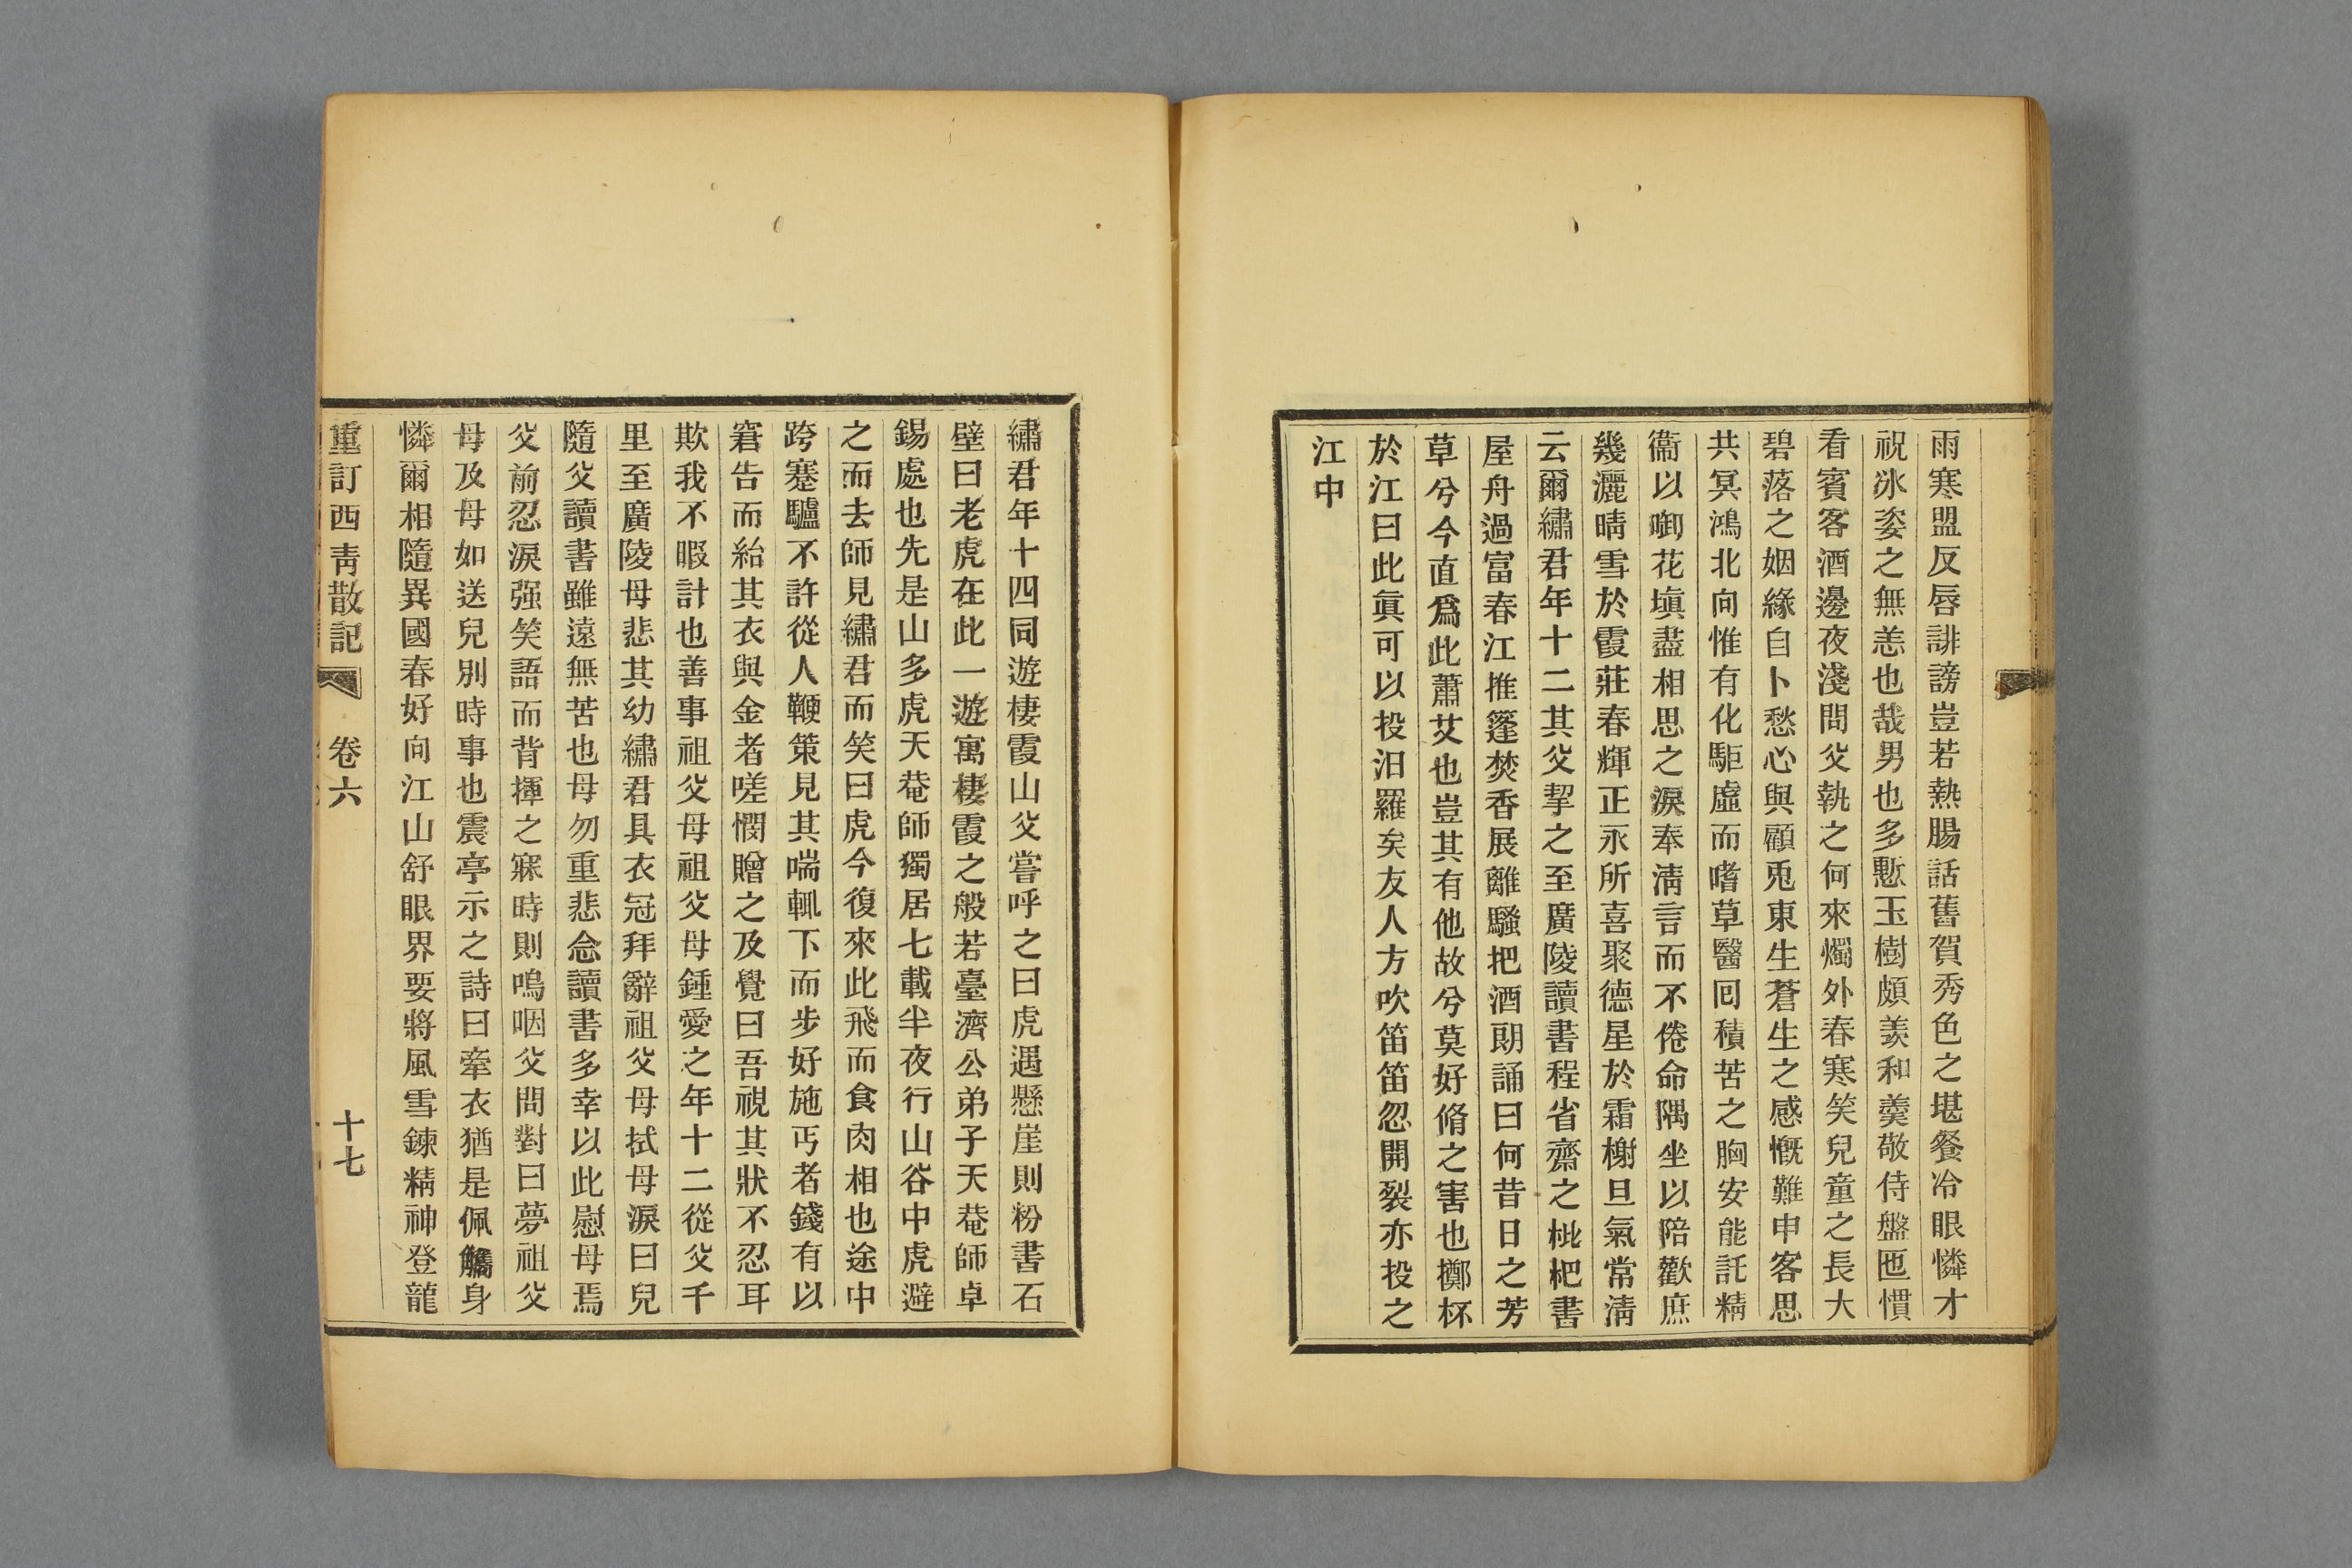 雨寒盟反唇誹謗豈若熱腸話舊賀秀色之堪餐冷眼憐才
祝冰姿之無恙也哉男也多慙玉樹頗羨和羹敬侍盤匜慣
看賓客酒邊夜淺問父執之何來燭外春寒笑兒童之長大
碧落之姻緣自卜愁心與顧兎東生蒼生之感慨難申客思
共冥鴻北向惟有化駏虛而嗜草醫囘積苦之胸安能託精
衞以啣花塡盡相思之淚奉淸言而不倦命隅坐以陪歡庶
幾灑晴雪於霞莊春輝正永所喜聚德星於霜榭旦氣常淸
云爾繡君年十二其父挈之至廣陵讀書程省齋之枇杷書
屋舟過富春江推篷焚香展離騷把酒朗誦曰何昔日之芳
草兮今直爲此蕭艾也豈其有他故兮莫好脩之害也擲杯
於江曰此眞可以投汨羅矣友人方吹笛笛忽開裂亦投之
江中
繡君年十四同遊棲霞山父嘗呼之曰虎遇懸崖則粉書石
壁曰老虎在此一遊寓棲霞之般若臺濟公弟子天菴師卓
錫處也先是山多虎天菴師獨居七載半夜行山谷中虎避
之而去師見繡君而笑曰虎今復來此飛而食肉相也途中
跨蹇驢不許從人鞭策見其喘輒下而步好施丐者錢有以
窘告而紿其衣與金者嗟憫贈之及覺曰吾視其狀不忍耳
欺我不暇計也善事祖父母祖父母鍾愛之年十二從父千
里至廣陵母悲其幼繡君具衣冠拜辭祖父母拭母淚曰兒
隨父讀書雖遠無苦也母勿重悲念讀書多幸以此慰母焉
父前忍淚强笑語而背揮之寐時則嗚咽父問對曰夢祖父
母及母如送兒別時事也震亭示之詩曰牽衣猶是佩觿身
憐爾相隨異國春好向江山舒眼界要將風雪鍊精神登龍
重訂西靑散記 卷六 十七